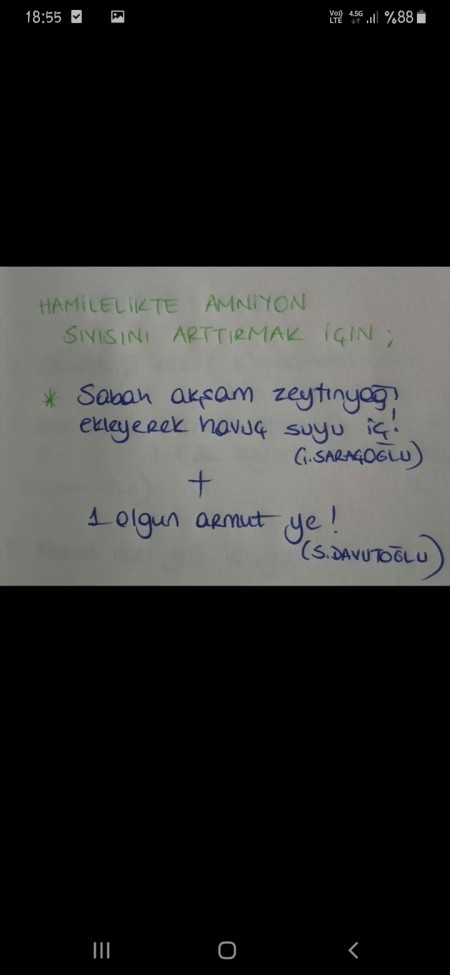 18:55
Vo)) LTE 4.5G %88
HAMİLELİKTE AMNİYON
SIVISINI ARTTIRMAK İÇİN;
* Sabah akşam zeytinyağı
ekleyerek havuç suyu iç!
(İ.SARAÇOĞLU)
+
1 olgun armut ye!
(S.DAVUTOĞLU)